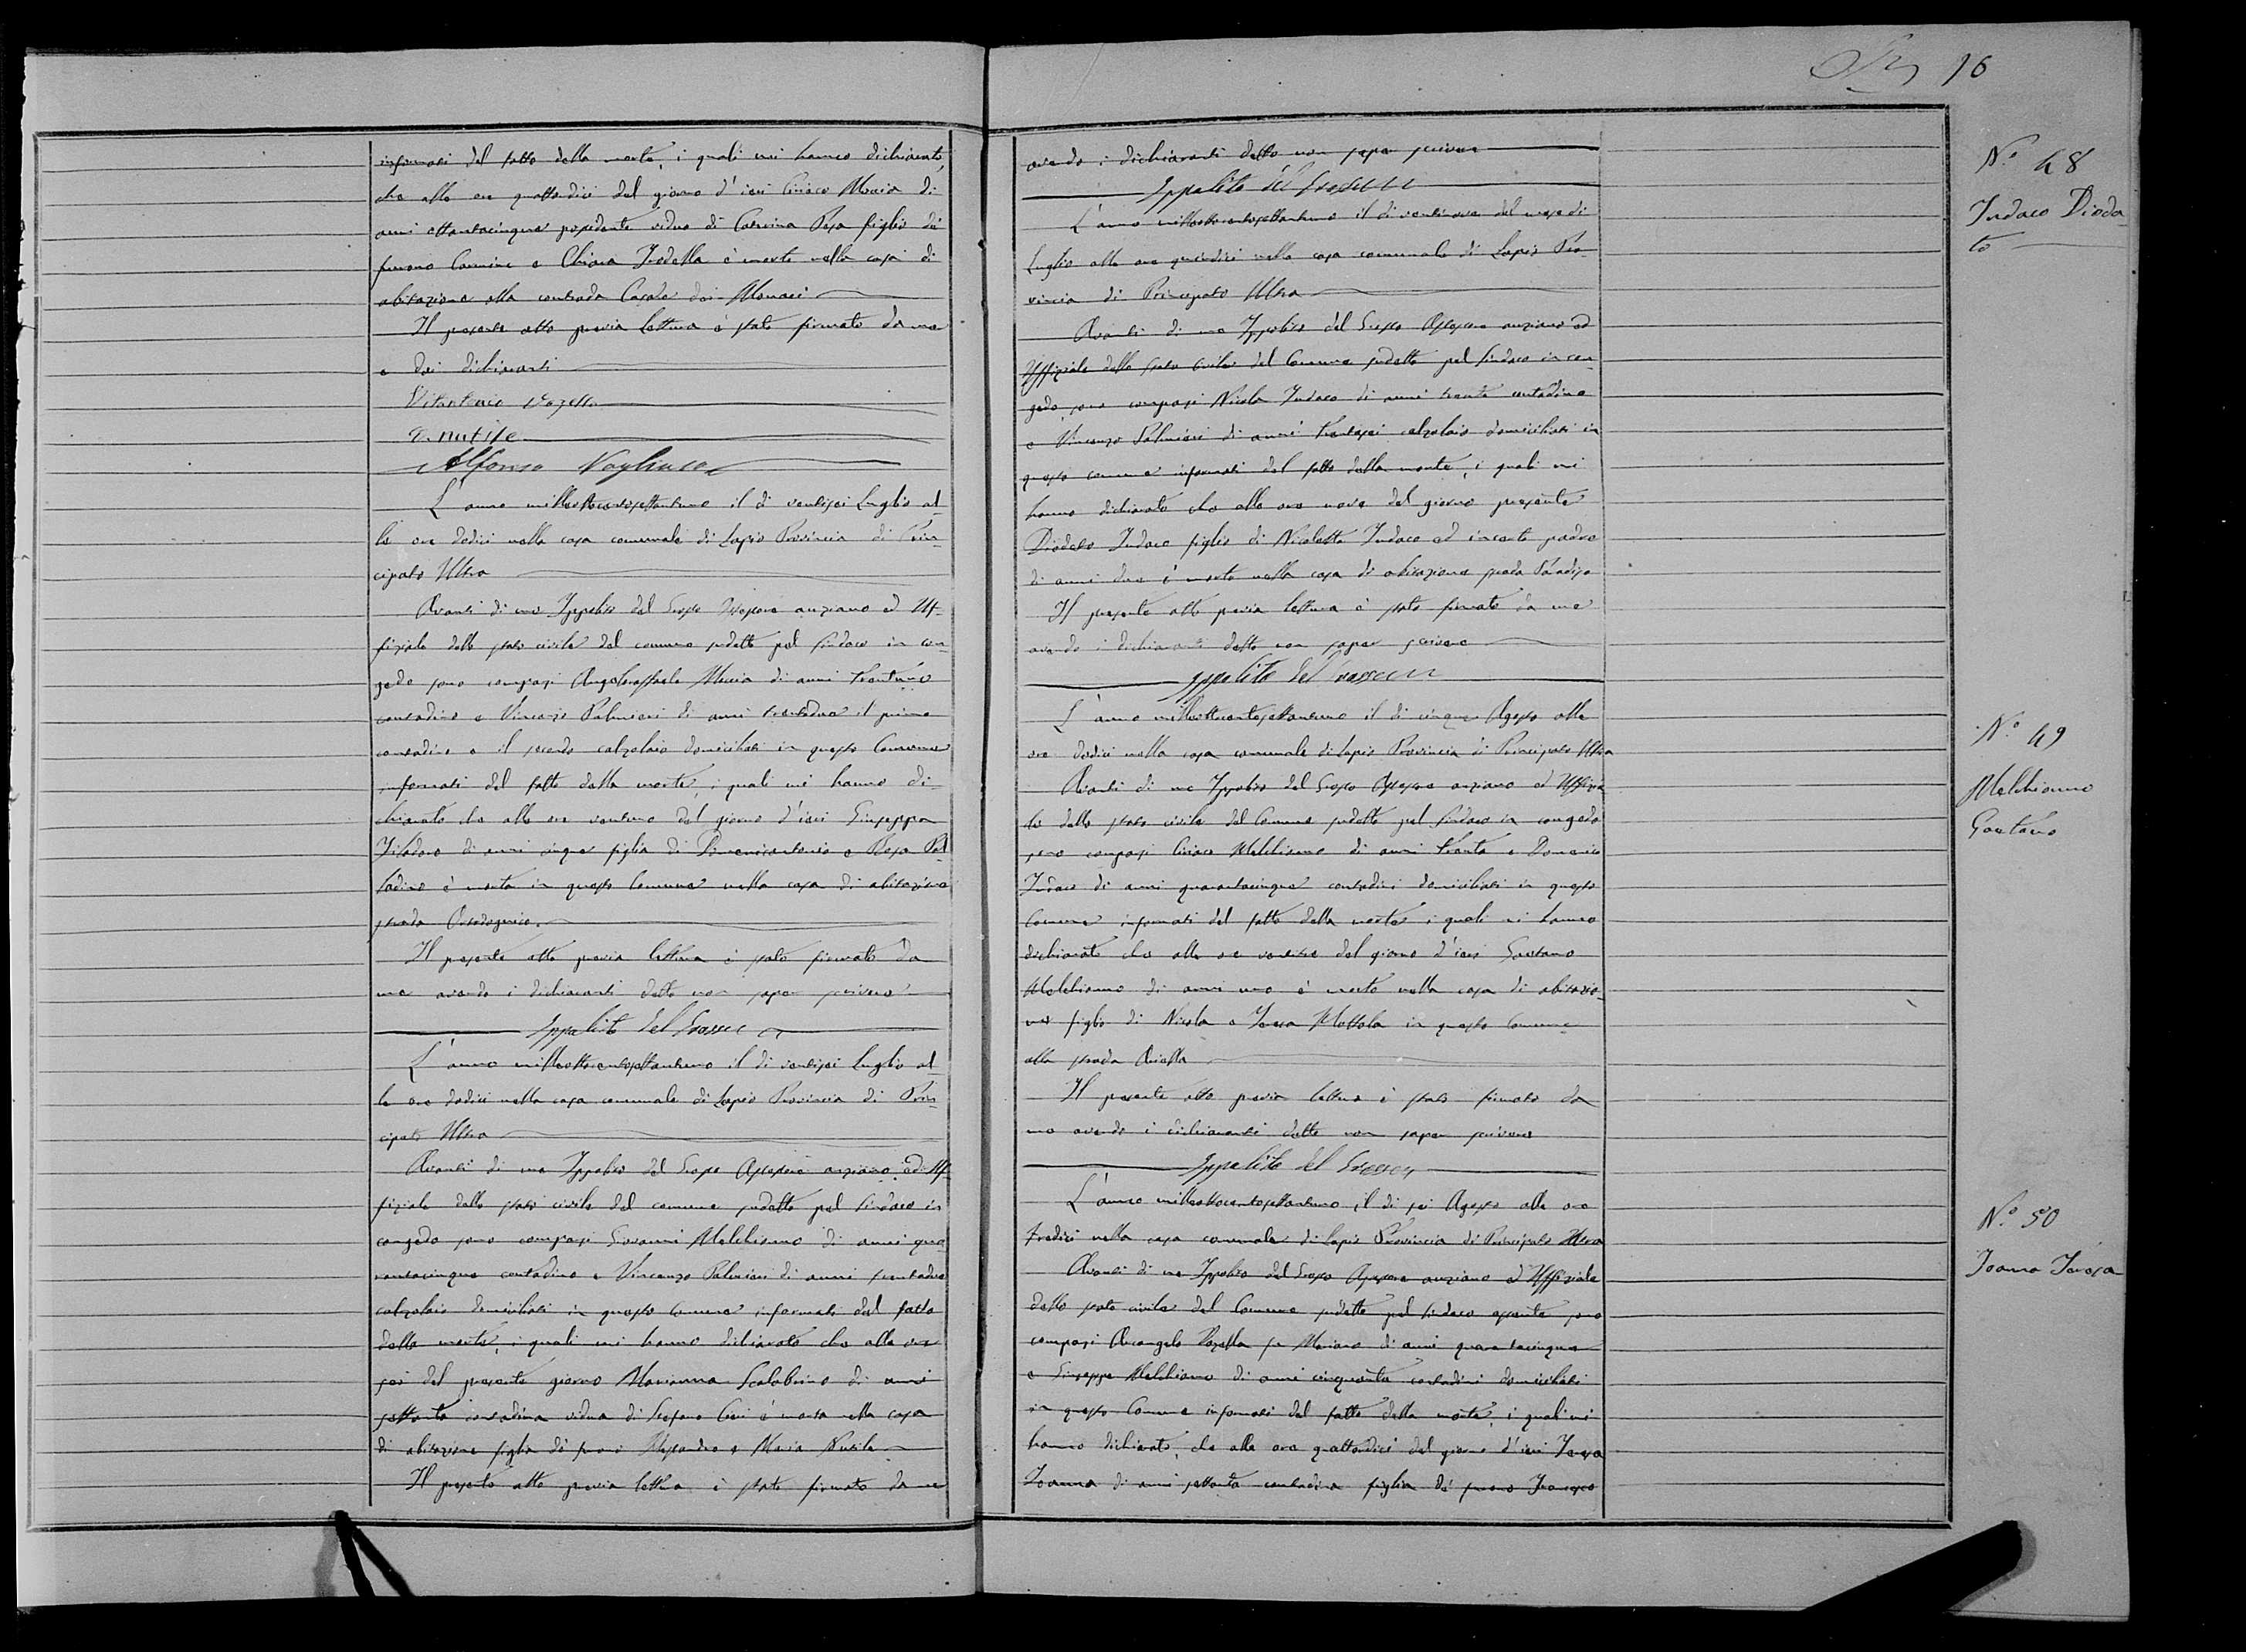 informati del fatto della morte, i quali mi hanno dichiarato,
che alle ore quattordici del giorno d'ieri Ciriaco Muscia di
anni ottantacinque possidente veduo di Caterina Pesa figlio di
furono Carmine e Chiara è morto nella casa di
abitazione alla contrada Casale dei Monaci
Il presente atto previa lettura è stato firmato da me
e dai dichiaranti
Vitantonio
G. nutile
Alfonso
L'anno milleottocentosettantuno il di ventisei Luglio al-
le ore dodici nella casa comunale di Lapio Provincia di Prin-
cipato Ultra
Avanti di me Ippolito del Grosso Assessore anziano ed Uf-
fiziale dello stato civile del comune sudetto pel sindaco in con-
gedo sono comparsi Angeloraffaele di anni trentuno
contadino e Vincenzo Palmieri di anni trentadue il primo
contadino e il secondo calzolaio domiciliati in questo Comune
informati del fatto della morte, i quali mi hanno di-
chiarato che alle ore ventuno del giorno d'ieri Giuseppa
di anni cinque figlia di Domenicantonio e Rosa Pal-
ladino è morta in questo Comune nella casa di abitazione
strada
Il presente atto previa lettura è stato firmato da
me avendo i dichiaranti detto non saper scrivere
Ippolito del Grosso
L'anno milleottocentosettantuno il di ventisei Luglio al-
le ore dodici nella casa comunale di Lapio Provincia di Prin-
cipato Ultra
Avanti di me Ippolito del Grosso Assessore anziano ed Uf-
fiziale dello stato civile del comune sudetto pel sindaco in
congedo sono comparsi Giovanni Melchionno di anni qua-
rantacinque contadino e Vincenzo Palmieri di anni trentadue
calzolaio domiciliati in questo Comune informati del fatto
della morte, i quali mi hanno dichiarato che alle ore
sei del presente giorno Marianna Scalabrino di anni
settanta contadina vedua di Stefano è morta nella casa
di abitazione figlia di furono Alessandro e Maria Nutile
Il presente atto previa lettura è stato firmato da me
16
avendo i dichiaranti detto non saper scrivere
Ippolito del Grosso
L'anno milleottocentosettantuno il di ventinove del mese di
Luglio alle ore quindici nella casa comunale di Lapio Pro-
vincia di Principato Ultra
Avanti di me Ippolito del Grosso Assessore anziano ed
Uffiziale dello stato civile del Comune sudetto pel sindaco in con-
gedo sono comparsi Nicola Indaco di anni trenta contadino
e Vincenzo Palmieri di anni trentasei calzolaio domiciliati in
questo comune informati del fatto della morte, i quali mi
hanno dichiarato che alle ore nove del giorno presente
Diodato Indaco figlio di Nicoletta Indaco ed incerto padre
di anni due è morto nella casa di abitazione strada Paradiso
Il presente atto previa lettura è stato firmato da me
avendo i dichiaranti detto non saper scrivere
Ippolito del Grosso
L'anno milleottocentosettantuno il di cinque Agosto alle
ore dodici nella casa comunale di Lapio Provincia di Principato Ultra
Avanti di me Ippolito del Grosso Assessore anziano ed Uffizia-
le dello stato civile del Comune sudetto pel sindaco in congedo
sono comparsi Ciriaco Melchionno di anni trenta e Domenico
Indaco di anni quarantacinque contadini domiciliati in questo
Comune informati del fatto della morte i quali mi hanno
dichiarato che alle ore ventitre del giorno d'ieri Gaetano
Melchionno di anni uno è morto nella casa di abitazio-
ne figlio di Nicola e Teresa Mottola in questo Comune
alla strada
Il presente atto previa lettura è stato firmato da
me avendo i dichiaranti detto non saper scrivere
Ippolito del Grosso
L'anno milleottocentosettantuno il di sei Agosto alle ore
tredici nella casa comunale di Lapio Provincia di Principato Ultra
Avanti di me Ippolito del Grosso Assessore anziano ed Uffiziale
dello stato civile del Comune sudetto pel sindaco assente sono
comparsi Arcangelo fu Mariano di anni quarantacinque
e Giuseppe Melchionno di anni cinquanta contadini domiciliati
in questo Comune informati del fatto della morte, i quali mi
hanno dichiarato, che alle ore quattordici del giorno d'ieri Teresa
Joanna di anni settanta contadina figlia di furono Francesco
N.º 48
Indaco Dioda-
to
N.º 49
Melchionno
Gaetano
N.º 50
Joanna Teresa